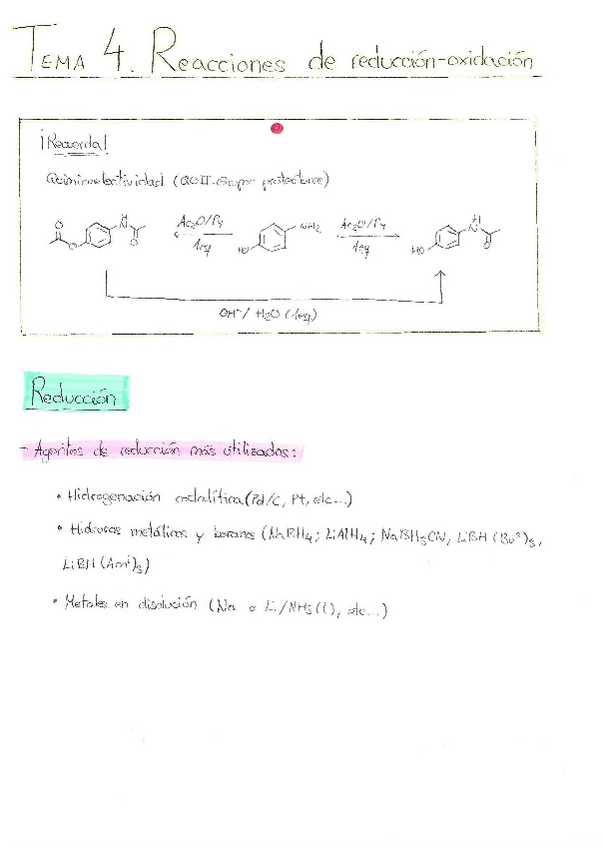 TEMA 4. Reacciones de reducción-oxidación
¡Recuerda!
Quimioselectividad (QOII. Grupos protectores)
O O H N O
Ac2O/Py
1eq
HO NH2
Ac2O/Py
1eq
HO H N O
OH-/ H2O (1eq)
Reducción
- Agentes de reducción más utilizados:
• Hidrogenación catalítica (Pd/C, Pt, etc...)
• Hidruros metálicos y boranos (NaBH4; LiAlH4; NaBH3CN, LiBH (Bus)3,
LiBH (Ami)3)
• Metales en disolución (Na o Li/NH3(l), etc...)